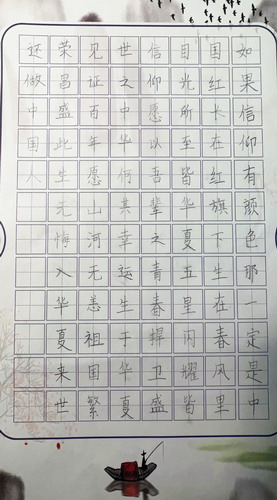 如果信仰有颜色那一定是中
国红长在红旗下生在春风里
目光所至皆华夏五星闪耀皆
信仰愿以吾辈之青春捍卫盛
世之中华何其幸运生于华夏
见证百年愿山河无恙祖国繁
荣昌盛此生无悔入华夏来世
还做中国人